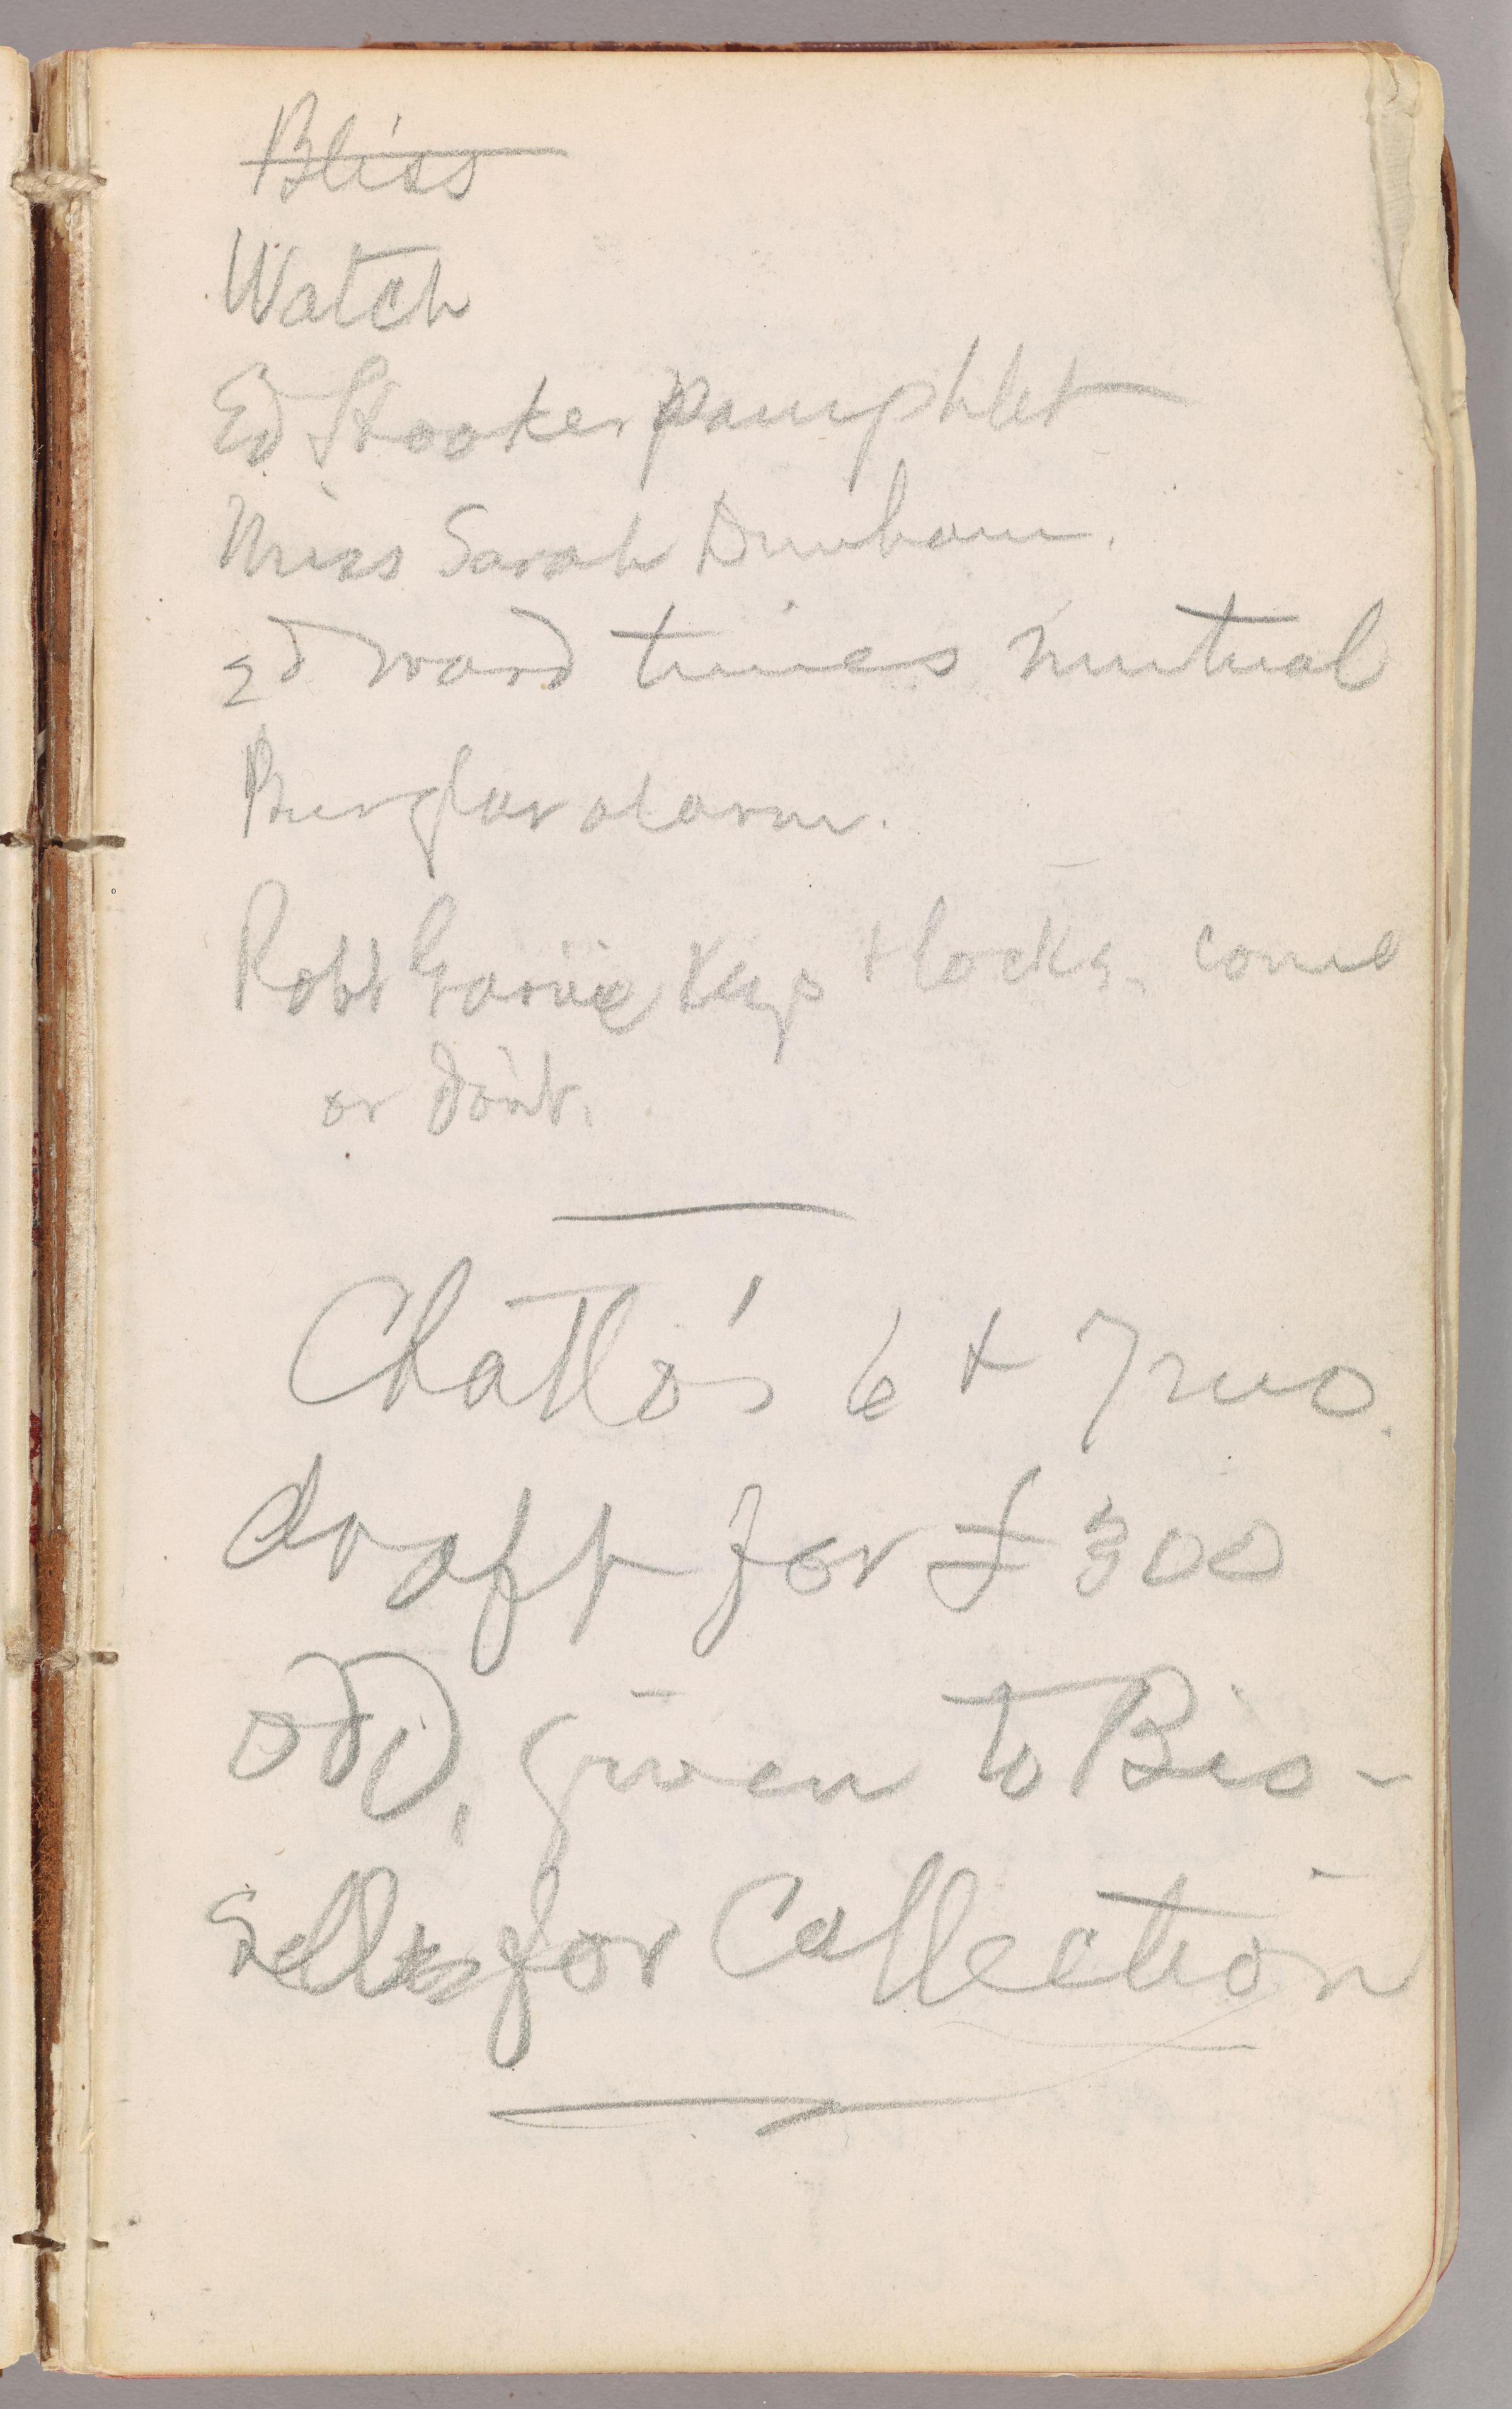 Bliss
Watch
Ed Hooker pamphlet
Miss Sarah Dunham.
Ed ward times mutual
Burglar alarm.
Robt Garvie Keys & locks. come
or don't.
Chatto's 6 & 7 mo.
draft for £300
odd, given to Bis-
sell for Collection